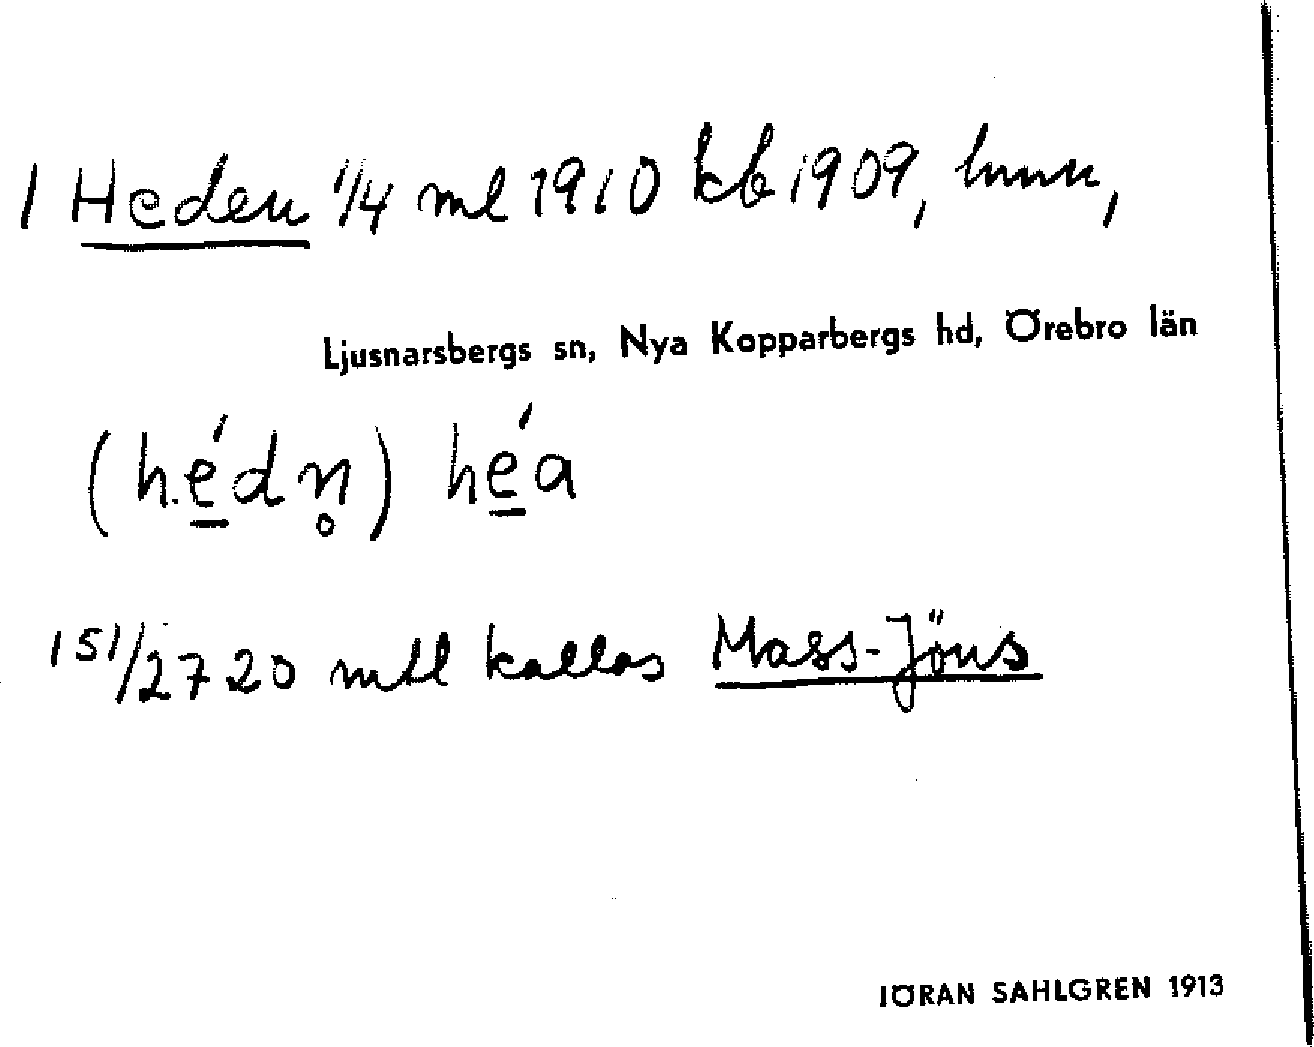 1 Heden 1/4 ml 1910 kb 1909, hmn,
Ljusnarsbergs sn, Nya Kopparbergs hd, Örebro län
(h.é̱dn̥) hé̱a
151/2720 mtl kallas Mass-Jöns
JÖRAN SAHLGREN 1913